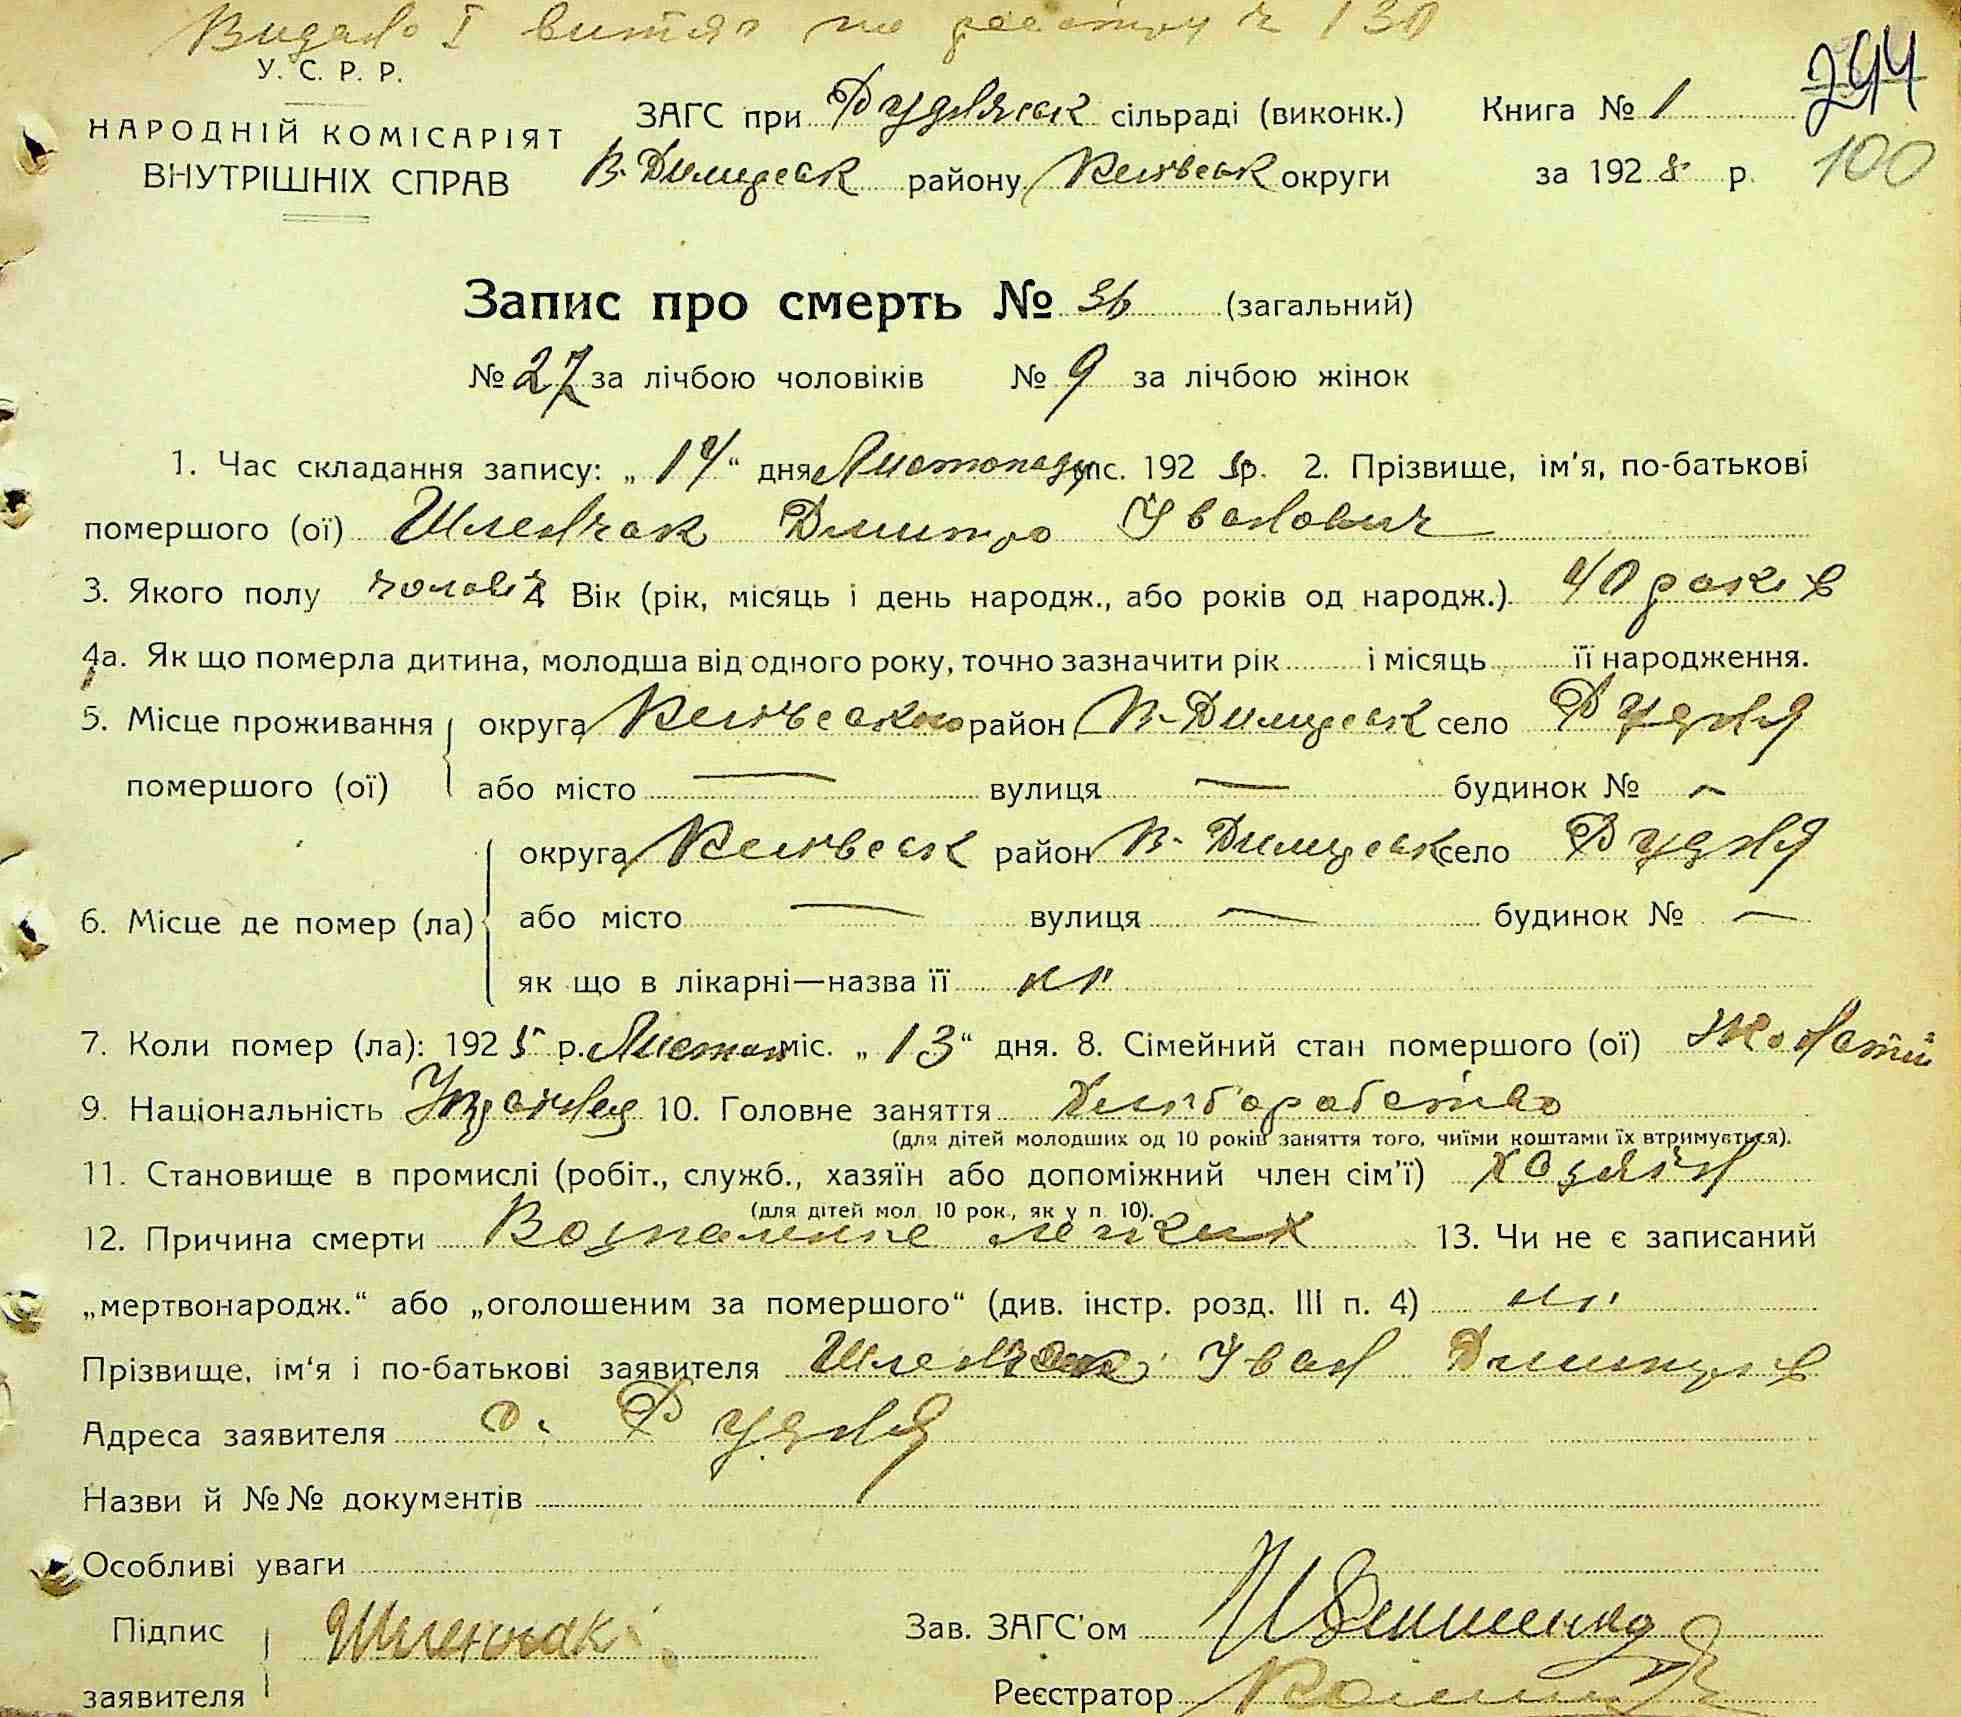 Видано I витяг по реєстру ч 130
У. С. Р. Р.
НАРОДНІЙ КОМІСАРІЯТ
ВНУТРІШНІХ СПРАВ
ЗАГС при Руднянськ сільраді (виконк.)
В-Димерськ району Київськ округи
Книга № 1
за 1928 р.
294
100
Запис про смерть № 36 (загальний)
№ 27 за лічбою чоловіків № 9 за лічбою жінок
1. Час складання запису: „14“ дня Листопаду міс. 192 р. 2. Прізвище, ім'я, по-батькові
помершого (ої) Шленчак Дмитро Іванович
3. Якого полу чолов. 4. Вік (рік, місяць і день народж., або років од народж.) 40 років
4а. Як що померла дитина, молодша від одного року, точно зазначити рік і місяць її народження.
5. Місце проживання помершого (ої) округа Київського район В-Димерськ село Рудня
або місто — вулиця — будинок № —
6. Місце де помер (ла) округа Київськ район В-Димерськ село Рудня
або місто — вулиця — будинок № —
як що в лікарні—назва її ні
7. Коли помер (ла): 192 р. Листоп міс. „13“ дня. 8. Сімейний стан помершого (ої) Жонатий
9. Національність Українец 10. Головне заняття Хліборобство
(для дітей молодших од 10 років заняття того, чиїми коштами їх втримується).
11. Становище в промислі (робіт., служб., хазяїн або допоміжний член сім'ї) хазяїн
(для дітей мол. 10 рок., як у п. 10).
12. Причина смерти Воспаленіе легких 13. Чи не є записаний
„мертвонародж.“ або „оголошеним за помершого“ (див. інстр. розд. III п. 4) ні
Прізвище, ім'я і по-батькові заявителя Шленчак Іван Дмитров
Адреса заявителя с. Рудня
Назви й №№ документів
Особливі уваги
Підпис заявителя Шленчак
Зав. ЗАГС'ом
Реєстратор